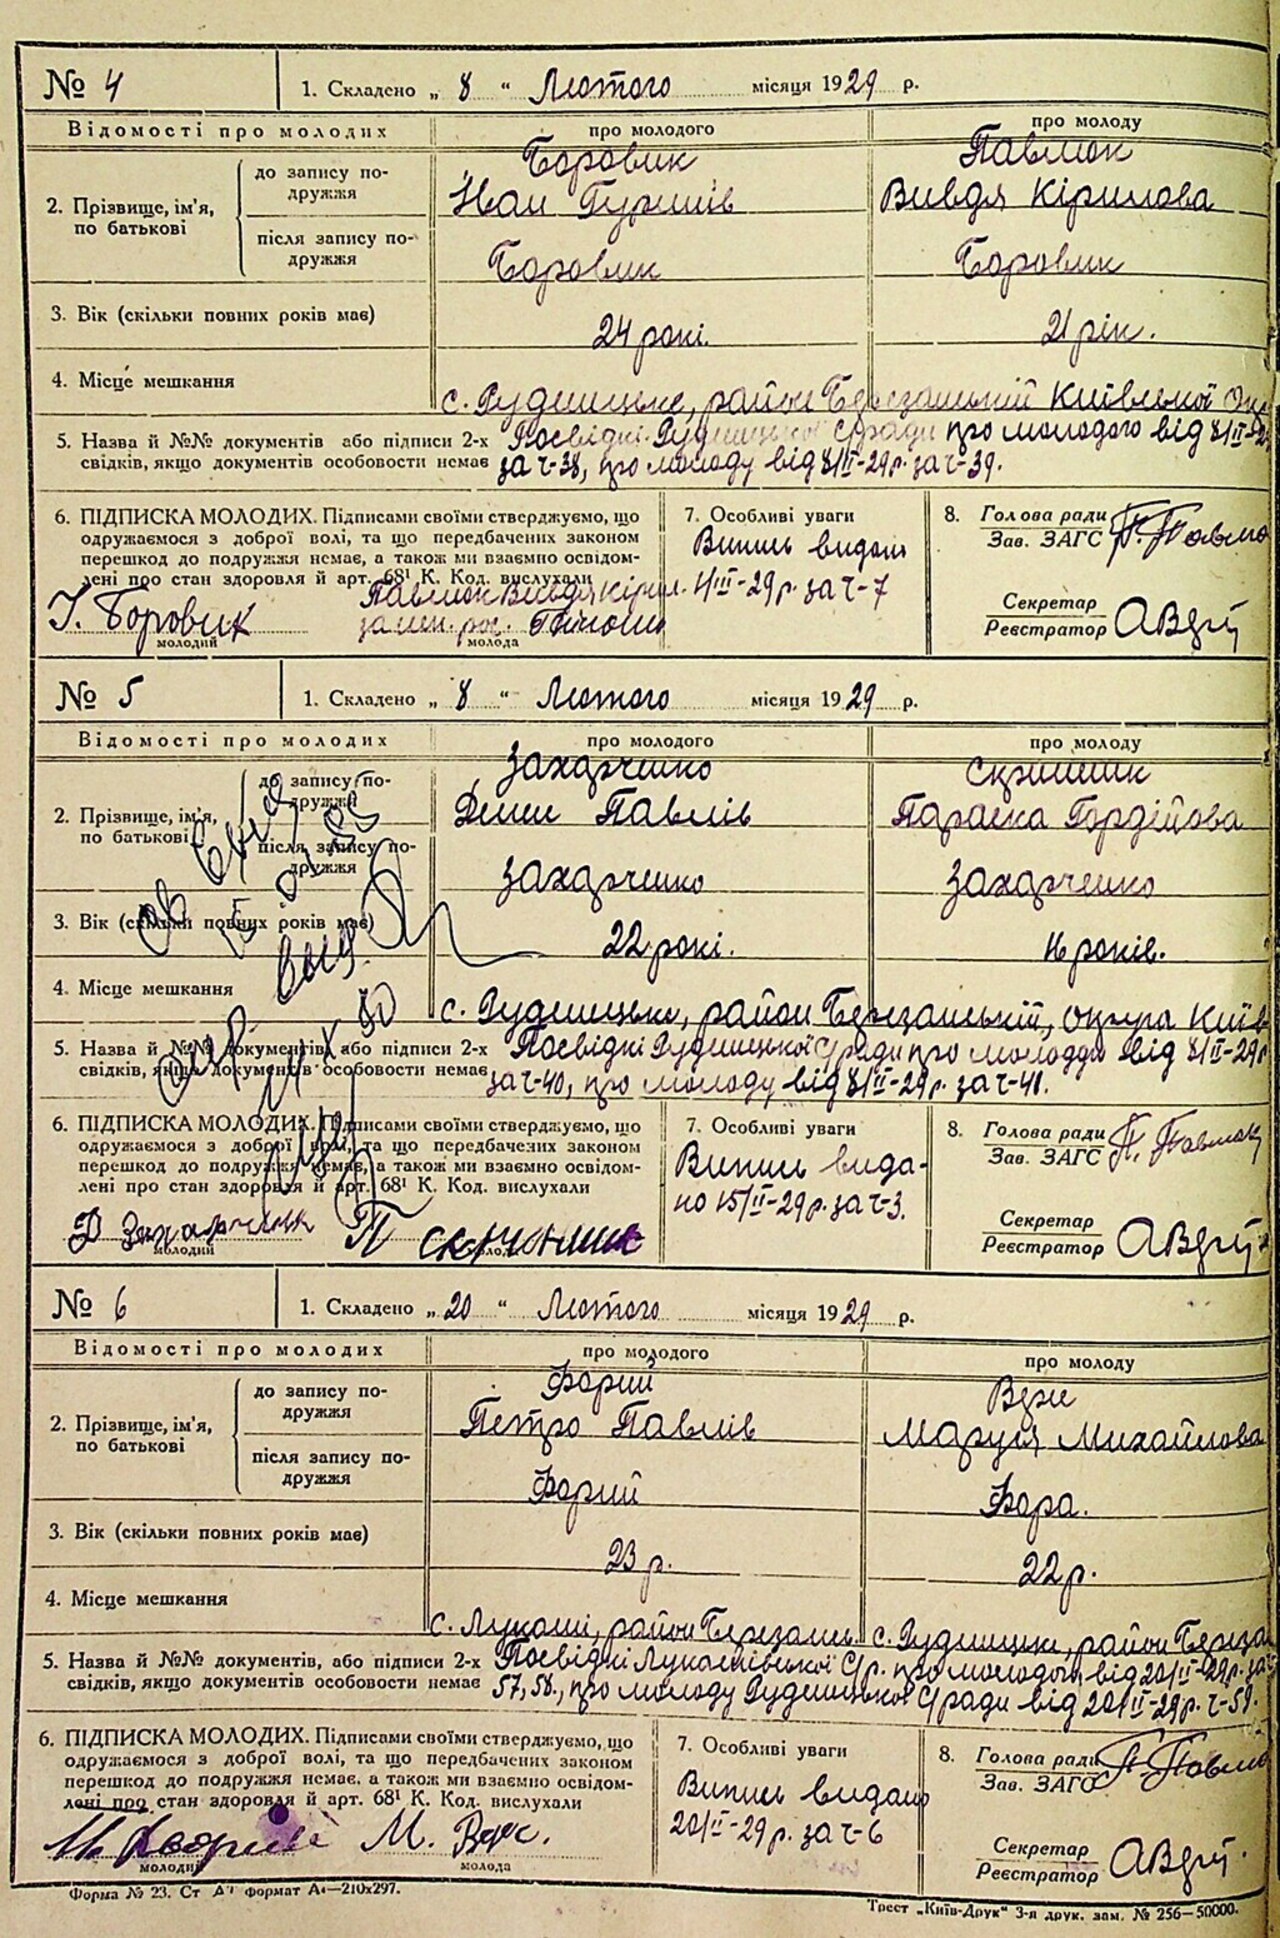 № 4
1. Складено „ 8 “ Лютого місяця 1929 р.
Відомості про молодих
про молодого
про молоду
2. Прізвище, ім'я, по батькові
до запису подружжя
Боровик
Іван
Павлюк
Вивдя Кірилова
після запису подружжя
Боровик
Боровик
3. Вік (скільки повних років має)
24 рокі.
21 рік.
4. Місце мешкання
с. Рудницьке, район Березанський Київської
5. Назва й №№ документів або підписи 2-х
свідків, якщо документів особовости немає
Посвідкі Рудницької с/ради про молодого від 8/II-29
за ч-38, про молоду від 8/II-29р. за ч-39.
6. ПІДПИСКА МОЛОДИХ. Підписами своїми стверджуємо, що
одружаємося з доброї волі, та що передбачених законом
перешкод до подружжя немає, а також ми взаємно освідом-
лені про стан здоров'я й арт. 68¹ К. Код. вислухали
І. Боровик
молодий
Павлюк Вивдя Кірил.
молода
7. Особливі уваги
Випись видано
за ч-7
8. Голова ради
Зав. ЗАГС
Секретар
Реєстратор
№ 5
1. Складено „ 8 “ Лютого місяця 1929 р.
Відомості про молодих
про молодого
про молоду
2. Прізвище, ім'я, по батькові
до запису подружжя
Захарченко
Демян Павлів
Параска Гордійова
після запису подружжя
Захарченко
Захарченко
3. Вік (скільки повних років має)
22 рокі.
16 років.
4. Місце мешкання
с. Рудницьке, район Березанській, округа Київ
5. Назва й №№ документів або підписи 2-х
свідків, якщо документів особовости немає
Посвідкі Рудницької с/ради про молодого від 8/II-29р
за ч-40, про молоду від 8/II-29р. за ч-41.
6. ПІДПИСКА МОЛОДИХ. Підписами своїми стверджуємо, що
одружаємося з доброї волі, та що передбачених законом
перешкод до подружжя немає, а також ми взаємно освідом-
лені про стан здоров'я й арт. 68¹ К. Код. вислухали
Д Захарченко
молодий
молода
7. Особливі уваги
Випись вида-
но 15/II-29р. за ч-3.
8. Голова ради
Зав. ЗАГС
Секретар
Реєстратор
№ 6
1. Складено „ 20 “ Лютого місяця 1929 р.
Відомості про молодих
про молодого
про молоду
2. Прізвище, ім'я, по батькові
до запису подружжя
Хорий
Петро Павлів
Маруся Михайлова
після запису подружжя
Хорий
Хора.
3. Вік (скільки повних років має)
23 р.
22 р.
4. Місце мешкання
с. Лукаші, район Березань
с. Рудницьке, район Береза
5. Назва й №№ документів, або підписи 2-х
свідків, якщо документів особовости немає
Посвідкі Лукашівської С/р. про молодого, від 20/II-29р. за
57, 58., про молоду Рудницької с/ради від 20/II-29р. ч-59.
6. ПІДПИСКА МОЛОДИХ. Підписами своїми стверджуємо, що
одружаємося з доброї волі, та що передбачених законом
перешкод до подружжя немає, а також ми взаємно освідом-
лені про стан здоров'я й арт. 68¹ К. Код. вислухали
молодий
М.
молода
7. Особливі уваги
Випись видано
20/II-29р. за ч-6
8. Голова ради
Зав. ЗАГС
Секретар
Реєстратор
Форма № 23. Ст формат А4—210х297.
Трест „Київ-Друк“ 3-я друк. зам. № 256—50000.